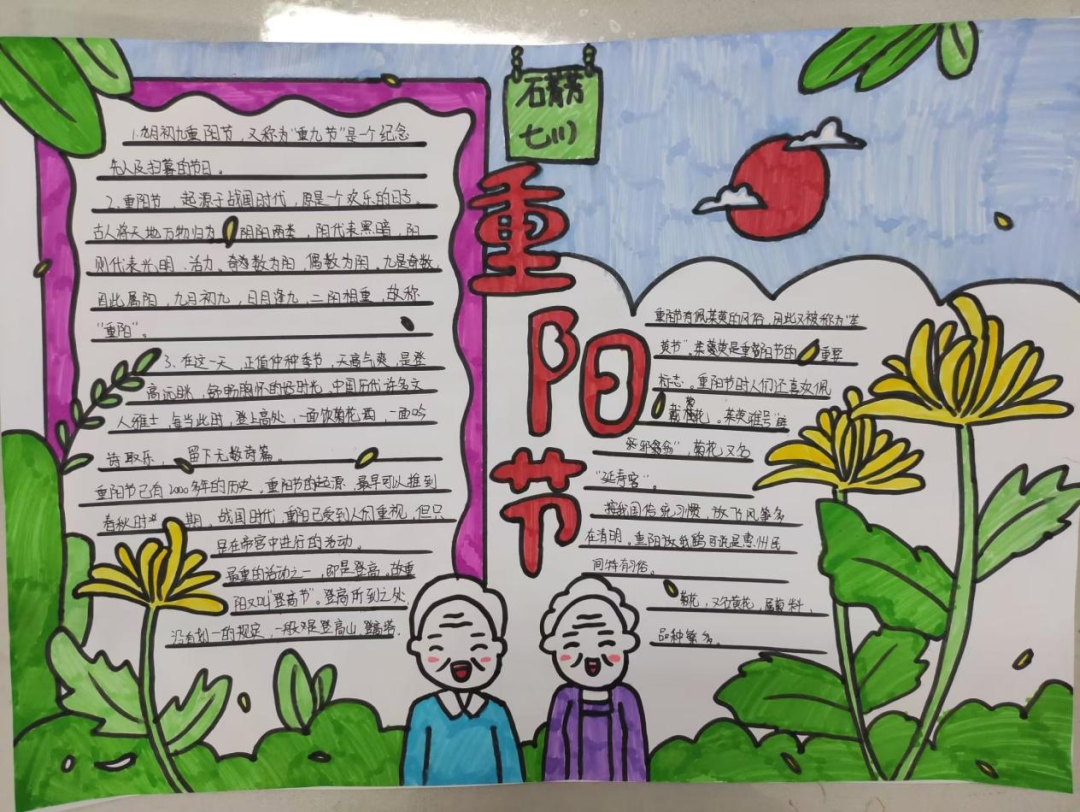 石菁芳
七(1)
重阳节
1.九月初九重阳节，又称为"重九节"是一个纪念
先人及扫墓的节日。
2.重阳节，起源于战国时代，原是一个欢乐的日子。
古人将天地万物归为阴阳两类，阳代表黑暗，阳
则代表光明、活力。奇数为阳，偶数为阴。九是奇数
因此属阳，九月初九，日月逢九，二阳相重，故称
"重阳"。
3、在这一天，正值仲种季节，天高气爽，是登
高远眺，舒畅胸怀的好时光，中国历代许多文
人雅士，每当此时，登上高处，一面饮菊花酒，一面吟
诗取乐，留下无数诗篇。
重阳节已有2000多年的历史，重阳节的起源，最早可以推到
春秋时期，战国时代，重阳已受到人们重视，但只
是在帝宫中进行的活动。
最重的活动之一，即是登高。故重
阳又叫"登高节"。登高所到之处
没有划一的规定，一般是登高山，登高塔.
重阳节有佩茱萸的风俗，因此又被称为"茱
萸节"。茱萸是重阳节的重要
标志。重阳节时人们还喜欢佩
戴菊花。茱萸雅号"辟
邪翁"，菊花又名
"延寿客"。
按我国传统习惯，放飞风筝多
在清明。重阳放纸鹞可说是惠州民
间特有习俗。
菊花，又名黄花，属菊科，
品种繁多。